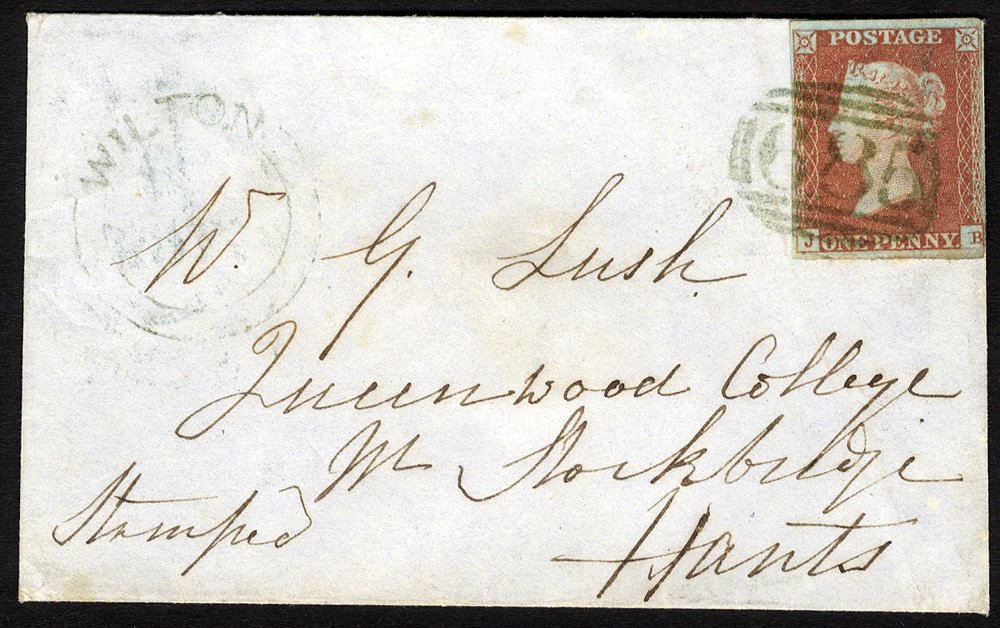 POSTAGE
J ONE PENNY B
WILTON
W. G. Lush
Queenwood College
Nr Stockbridge
Hants
Stamped